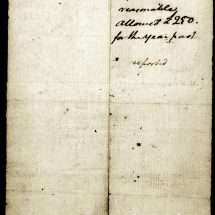 reasonably
allowed £250.
for the year past
reported